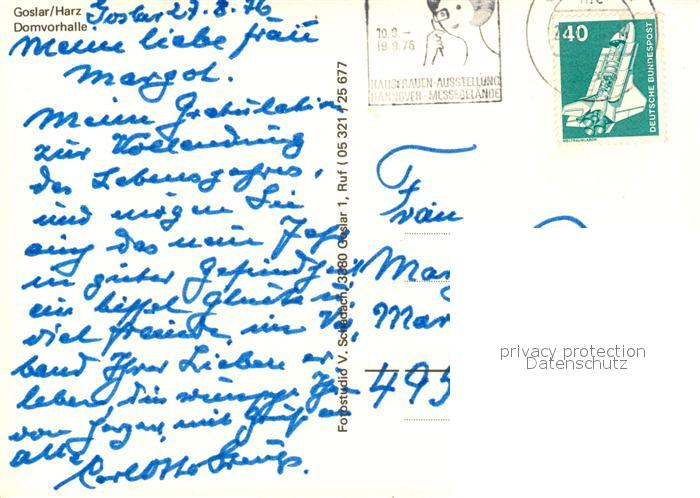 Goslar/Harz
Domvorhalle
Goslar 27.8.76
Meine liebe Frau
Margot.
Meine Gratulation
zur Vollendung
des Lebensjahres,
und mögen Sie
auch das neue Jahr
in guter Gesundheit
ein bissel Glück u.
viel Freude im Ver
band Ihrer Lieben er
leben dies wünscht Ihnen
von Herzen, mit Grüß an
alle
Carl Otto
10.9.-
19.9.76
HAUSFRAUEN-AUSSTELLUNG
HANNOVER-MESSEGELÄNDE
40
DEUTSCHE BUNDESPOST
WELTRAUMLABOR
Fotostudio V. Schadach, 3380 Goslar 1, Ruf (05 321) 25 677
Frau
Marg
Mar
495
privacy protection
Datenschutz